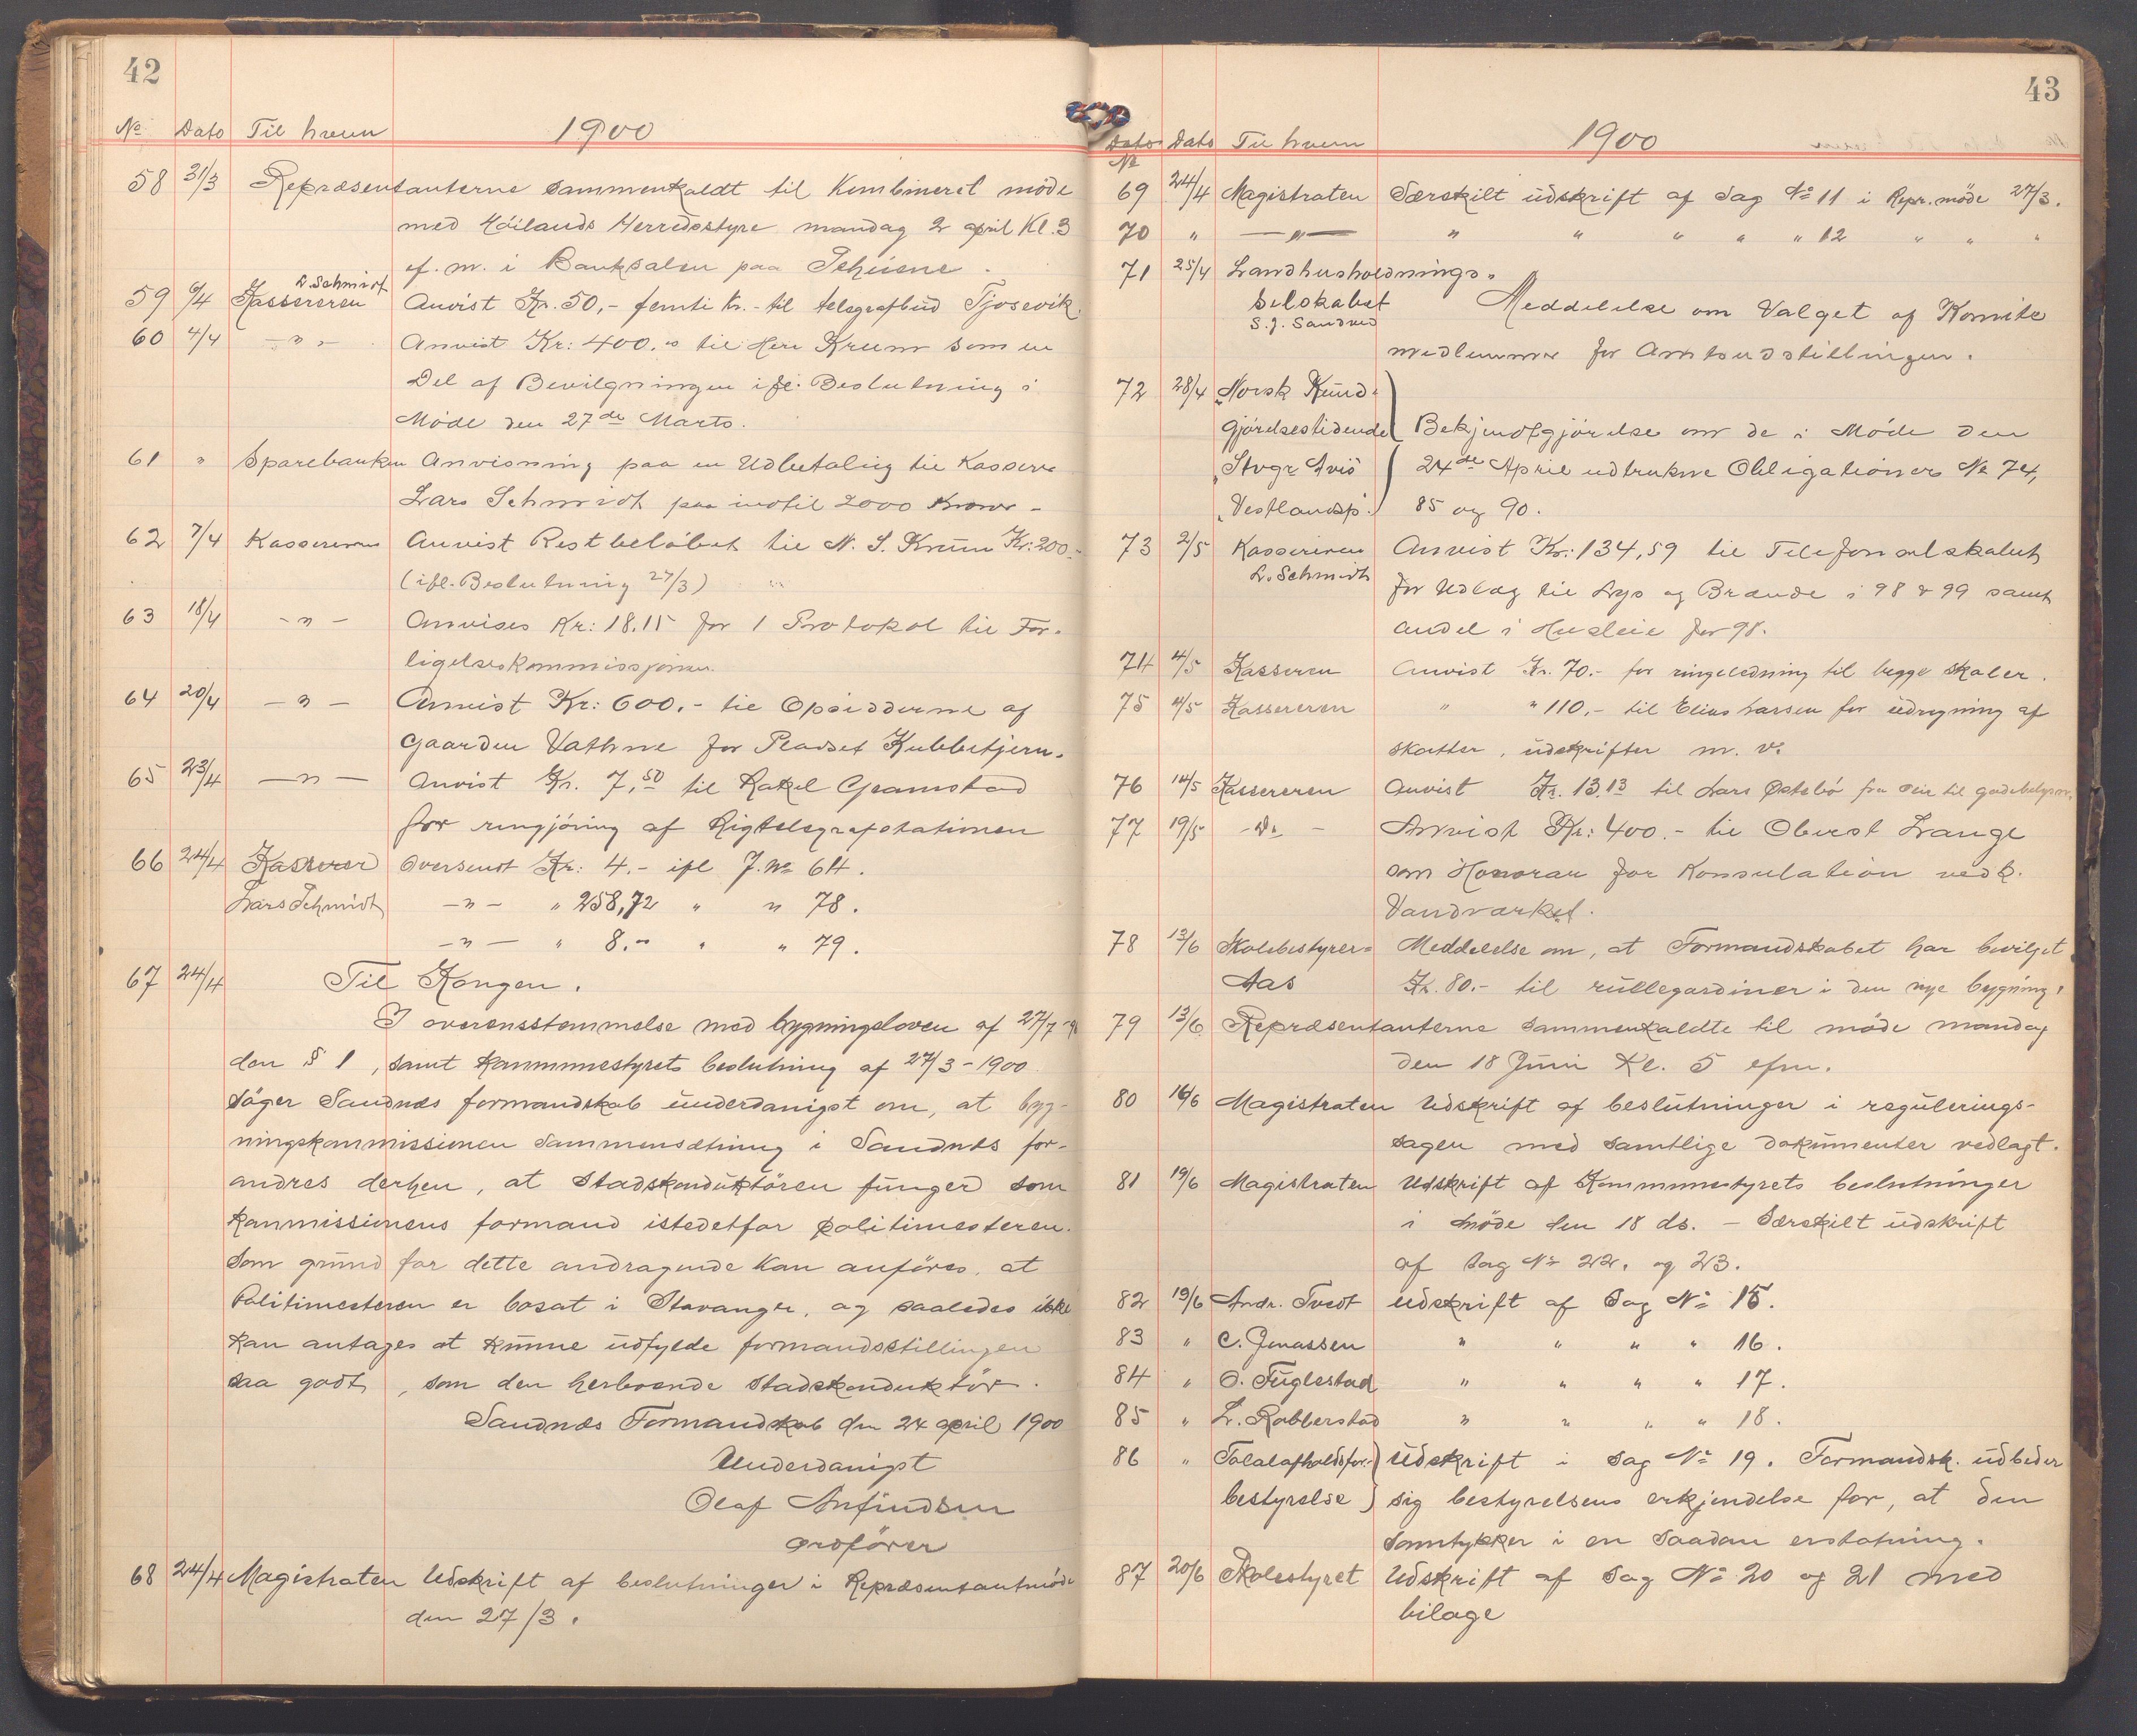 42
No Dato Til hvem 1900
58 31/3 Repræsentanterne sammenkaldt til Kombineret möde
med Höilands Herredsstyre mandag 2 april Kl. 3
ef. m. i Banksalen paa
L. Schmidt
59 6/4 Kassereren Anvist Kr. 50,- femti kr. - til telegrafbud Tjosevik.
60 4/4 - " - Anvist Kr: 400.00 til Herr Krum som en
Del af Bevilgningen ifl. Beslutning i
Møde den 27de Marts.
61 " Sparebanken Anvisning paa en Udbetaling til Kasserer
Lars Schmidt paa indtil 2000 Kroner -
62 7/4 Kassereren Anvist Restbelöbet til N. S. Krum Kr: 200.-
(ifl. Beslutning 27/3)
63 18/4 - " - Anvises Kr: 18.15 for 1 Protokol til For-
ligelseskommissjonen.
64 20/4 - " - Anvist Kr: 600.- til Opsidderne af
Gaarden Vathne for Pladset Kubbetjern.
65 23/4 - " - Anvist Kr. 7,50 til Rakel Gramstad
for rengjöring af Rigtelegrafstationen
66 24/4 Kasserer Oversendt Kr: 4.- ifl J. No 64.
Lars Schmidt - " - " 258,72 " " 78.
- " - " 8.- " " 79.
67 24/4 Til Kongen.
I overensstemmelse med bygningsloven af 27/7-96
den § 1, samt kommunestyrets beslutning af 27/3-1900
söger Sandnæs formandskab underdanigst om, at byg-
ningskommissionen sammensætning i Sandnæs for-
andres derhen, at Stadskonduktören funger som
kommissionens formand istedetfor politimesteren.
Som grund for dette andragende kan anföres, at
Politimesteren er bosat i Stavanger, og saaledes ikke
kan antages at kunne udfylde formandsstillingen
saa godt, som den herboende stadskonduktör.
Sandnæs Formandskab den 24 april 1900
Underdanigst
Olaf Anfindsen
ordförer
68 24/4 Magistraten Udskrift af beslutninger i Repræsentantmöde
den 27/3.
43
Dato Dato Til hvem 1900
No
69 24/4 Magistraten Særskilt udskrift af Sag No 11 i Repr. möde 27/3.
70 " - " - " " " " " 12 " " "
71 25/4 Landhusholdnings-
Selskabet Meddelelse om Valget af Komite
S. J. Sandved
medlemmer for Amtsudstillingen.
72 28/4 "Norsk Kund-
gjörelsestidende Bekjendtgjörelse om de i Möde den
"Stvgr Avis 24de April udtrukne Obligationer No 74,
"Vestlandsp. 85 og 90.
73 2/5 Kassereren Anvist Kr: 134,59 til Telefonselskabet
L. Schmidt for Udlæg til Lys og Brænde i 98 & 99 samt
andel i Husleie for 98.
74 4/5 Kasseren Anvist Kr. 70.- for ringeledning til begge skoler.
75 4/5 Kassereren " " 110,- til Elias Larsen for udregning af
skatter, udskrifter m. v.
76 14/5 Kassereren Anvist Kr. 13,13 til Lars Østebö for olie til gadebelysn.
77 19/5 - Do - Anvist Kr: 400.- til Oberst Lange
som Honorar for Konsulation vedk.
Vandværket.
78 13/6 Skolebestyrer- Meddelelse om, at Formandskabet har bevilget
Aas Kr. 80.- til rullegardiner i den nye bygning.
79 13/6 Repræsentanterne sammenkaldte til möde mandag
den 18 Juni Kl. 5 efm.
80 16/6 Magistraten Udskrift af beslutninger i regulerings-
sagen med samtlige dokumenter vedlagt.
81 19/6 Magistraten Udskrift af Kommunestyrets beslutninger
i möde den 18 ds. - Særskilt udskrift
af sag No 22. og 23.
82 19/6 Andr. Tvedt Udskrift af Sag No 15.
83 " C. Jonassen " " " " 16.
84 " O. Fuglestad " " " " 17.
85 " L. Robberstad " " " " 18.
86 " Totalafholdsfor- Udskrift i Sag No 19. Formandsk. udbeder
bestyrelse sig bestyrelsens erkjendelse for, at den
samtykker i en saadan erstatning.
87 20/6 Skolestyret Udskrift af Sag No 20 og 21 med
bilage